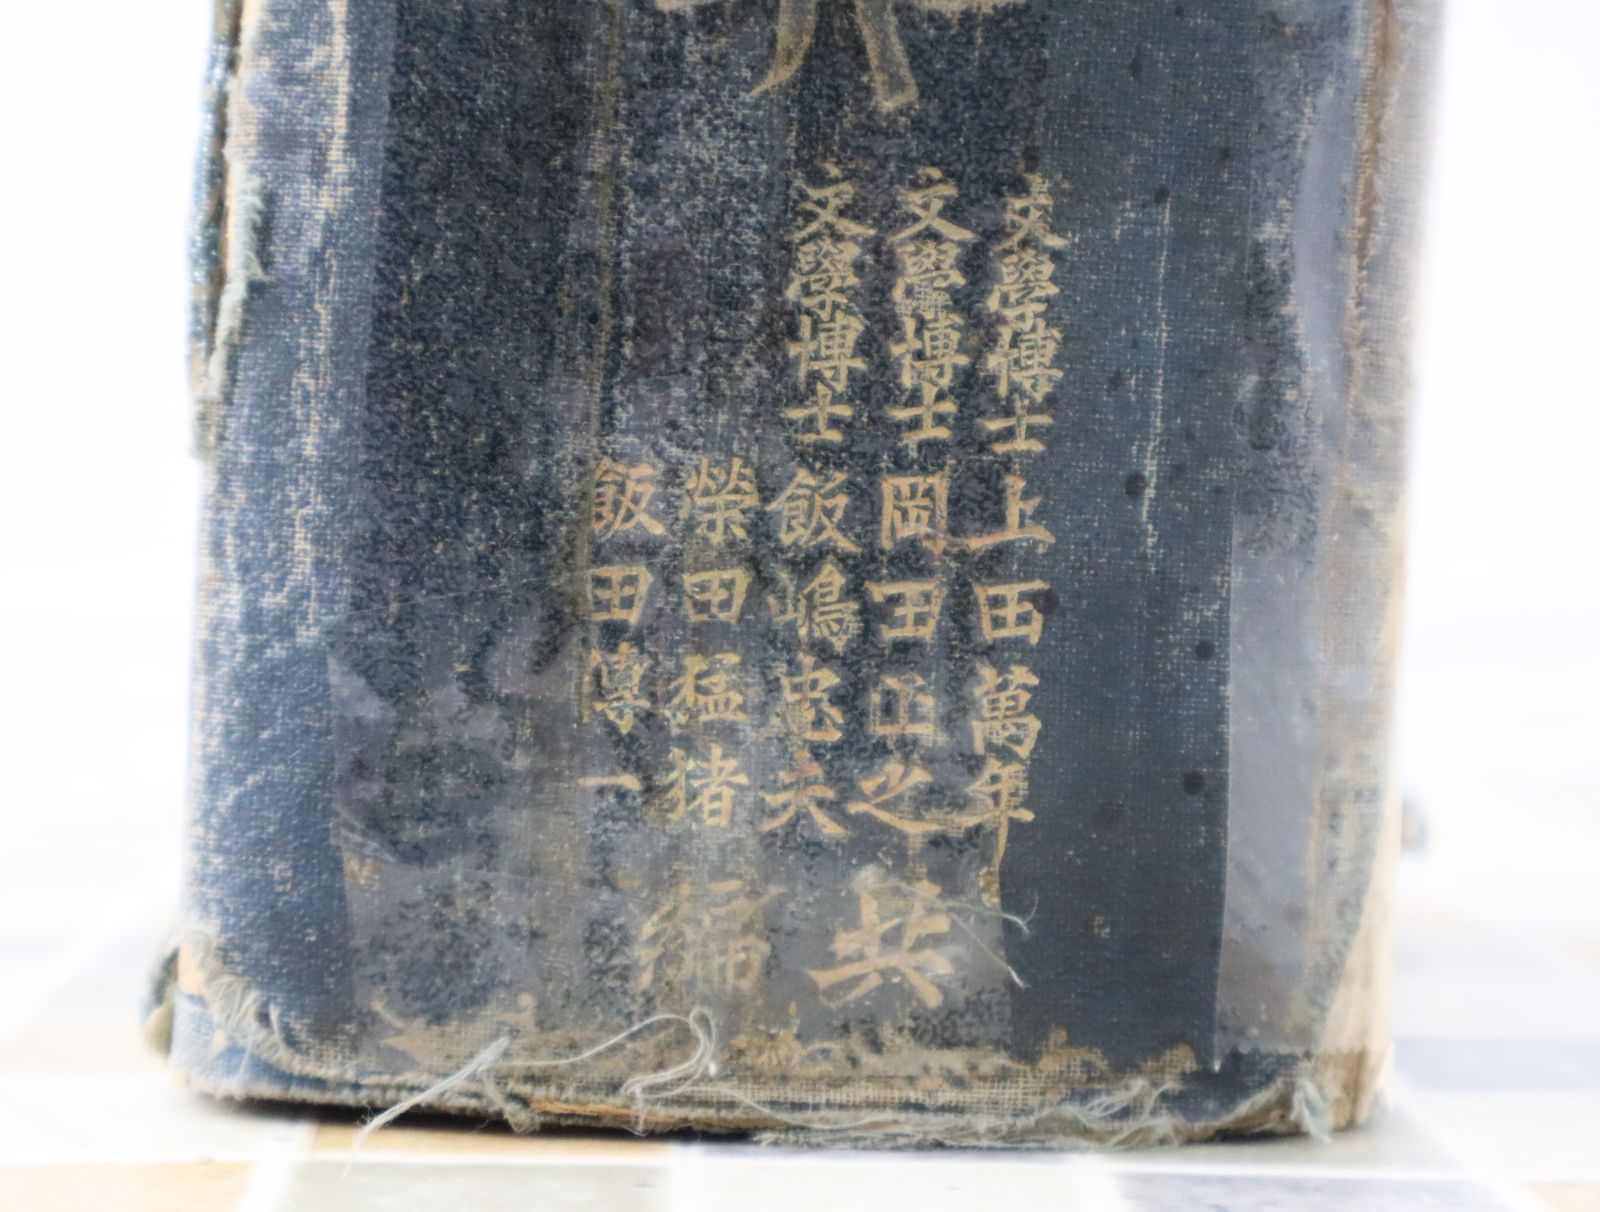 文學博士上田萬年
文學博士岡田正之
文學博士飯嶋忠夫
榮田猛猪
飯田傳一
共編